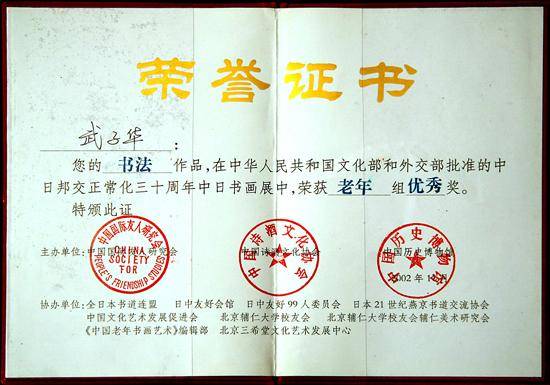 荣誉证书
武子华：
您的 书法 作品，在中华人民共和国文化部和外交部批准的中
日邦交正常化三十周年中日书画展中，荣获 老年 组优秀奖。
特颁此证
主办单位：中国国际友人研究会 中国诗酒文化协会 中国历史博物馆
中国国际友人研究会
CHINA SOCIETY FOR
PEOPLE'S FRIENDSHIP STUDIES
中国诗酒文化协会
中国历史博物馆
2002年
协办单位：全日本书道连盟 日中友好会馆 日中友好99人委员会 日本21世纪燕京书道交流协会
中国文化艺术发展促进会 北京辅仁大学校友会 北京辅仁大学校友会辅仁美术研究会
《中国老年书画艺术》编辑部 北京三希堂文化艺术发展中心